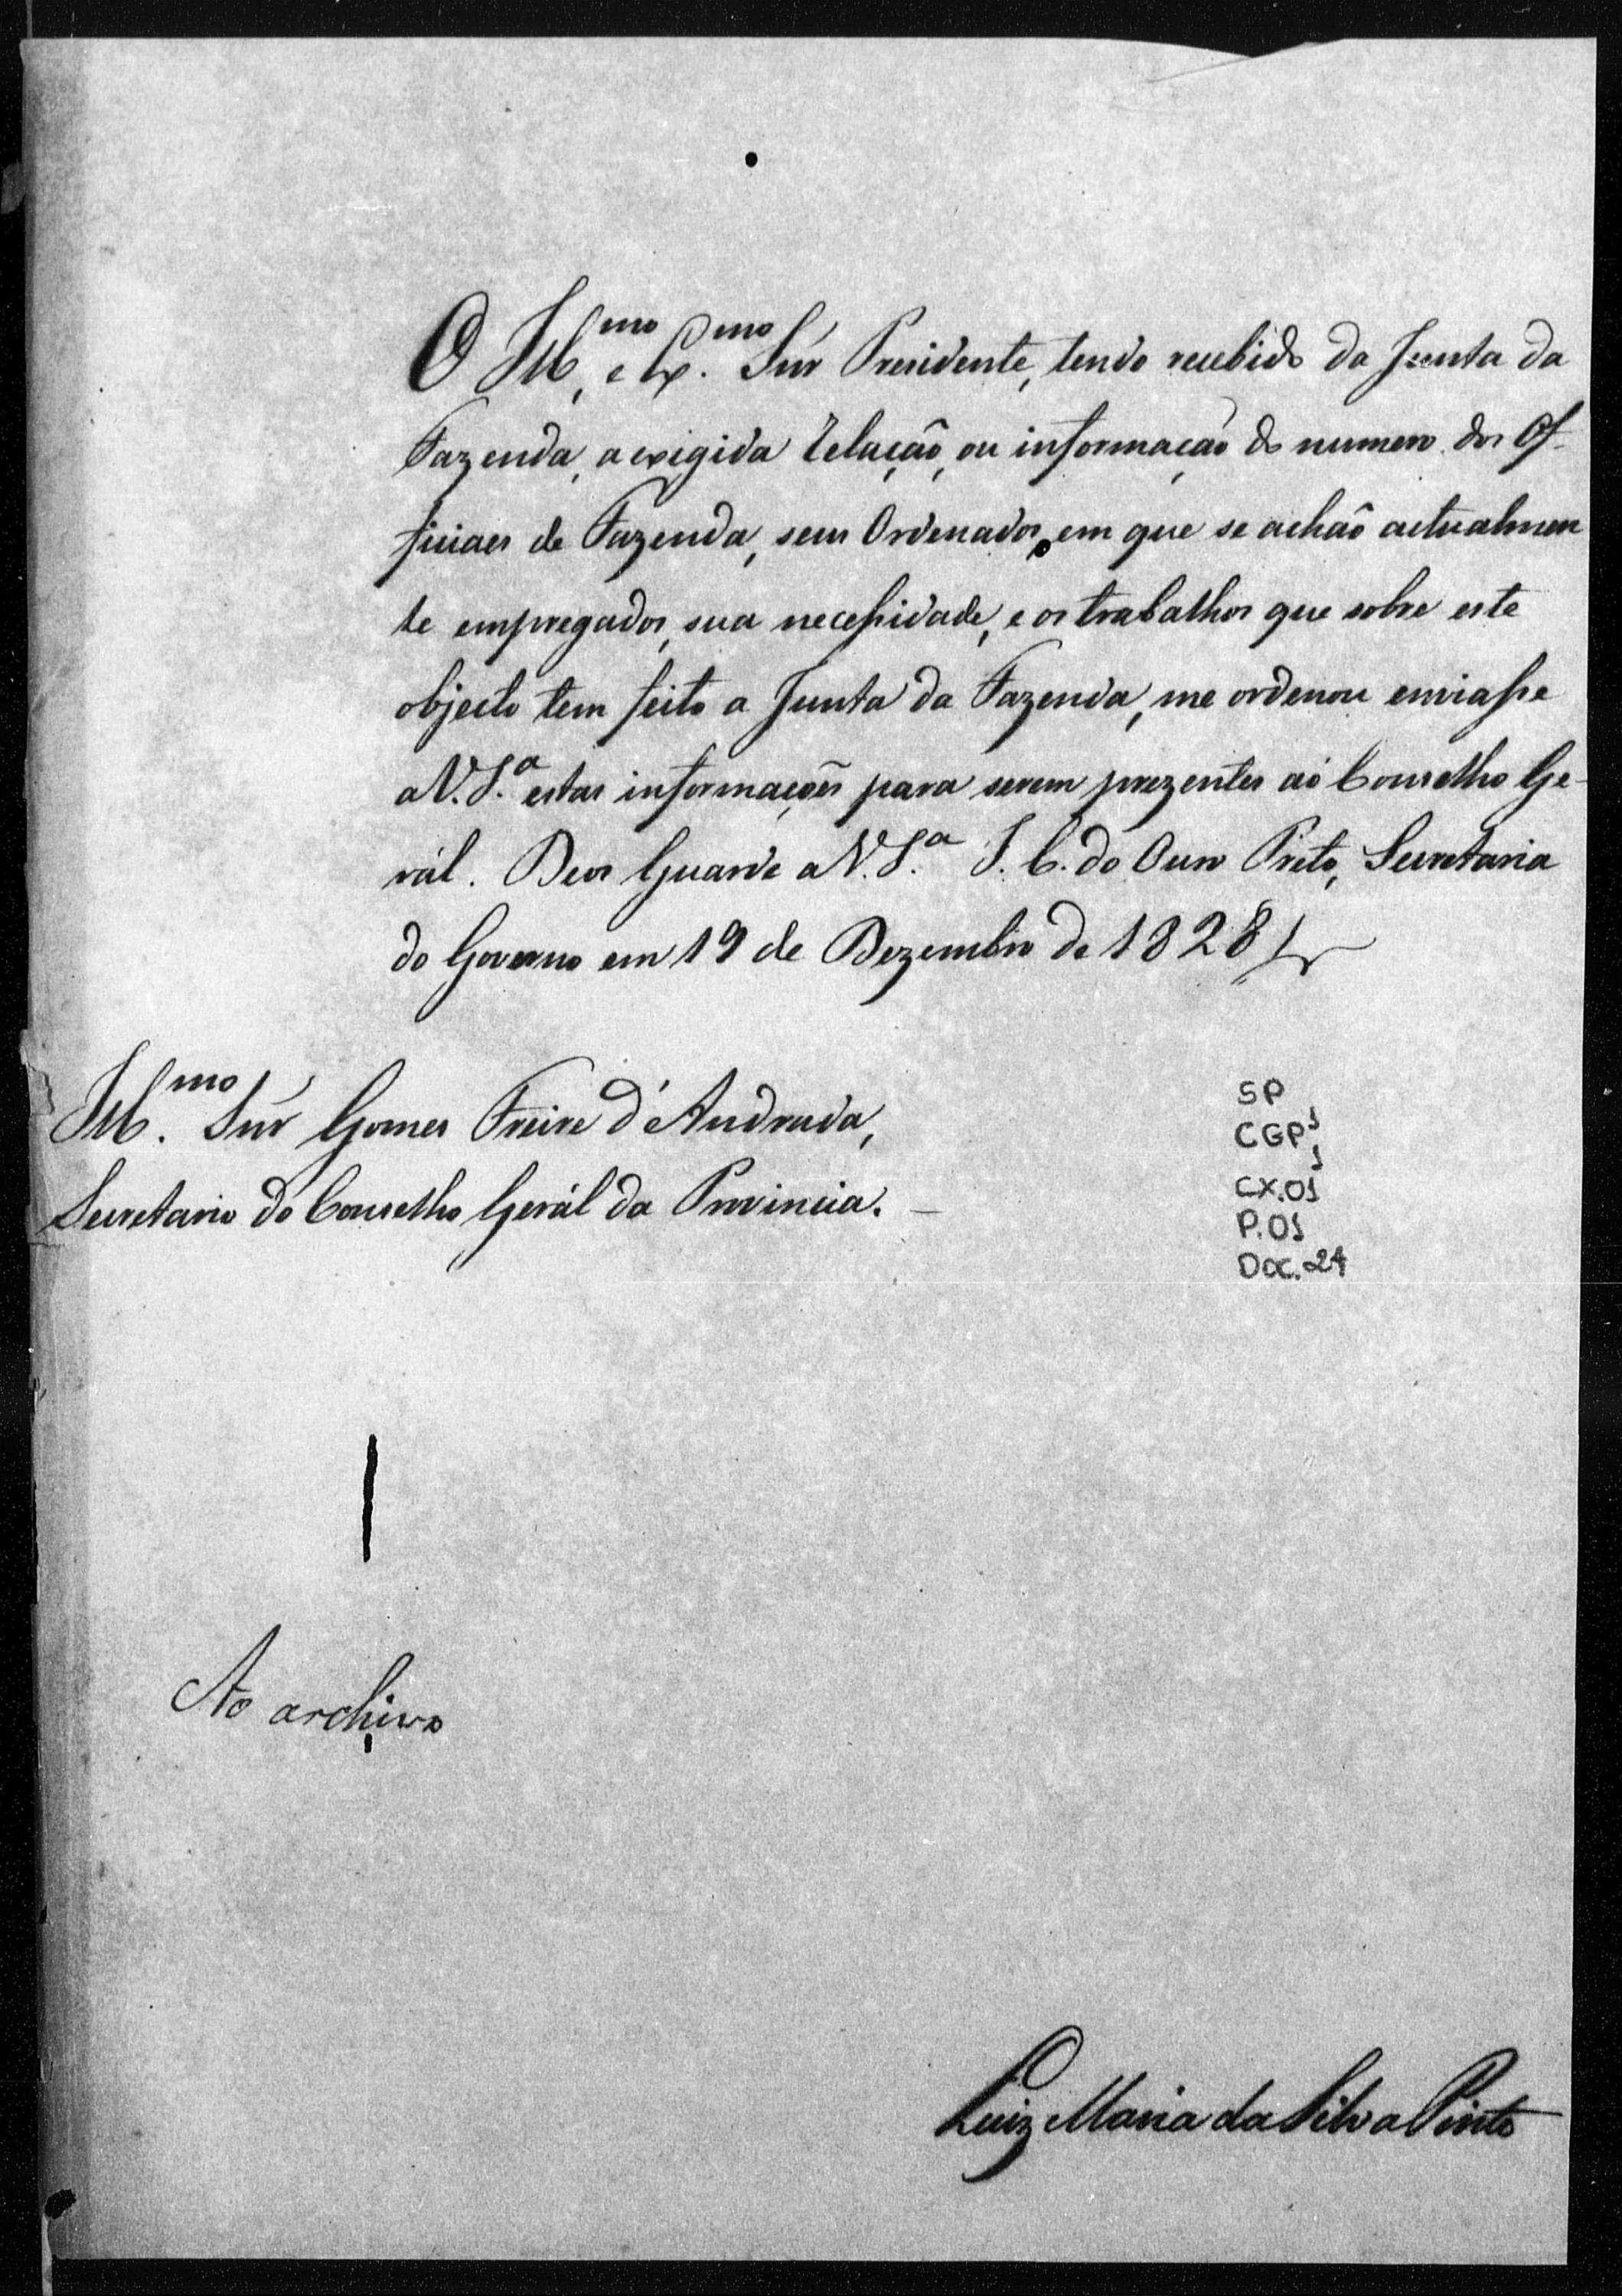 O Ill.mo, e Ex.mo Snr Presidente, tendo recebido da Junta da
Fazenda, a exigida Relação, ou informação do numero dos Of-
ficiaes de Fazenda, seus Ordenados, em que se achão actualmen
te empregados, sua necessidade, e os trabalhos que sobre este
objecto tem feito a Junta da Fazenda, me ordenou enviasse
a V. S.a estas informações para serem prezentes ao Conselho Ge-
rál. Deos Guarde a V. S.a I. C. do Ouro Preto, Secretaria
do Governo em 19 de Dezembro de 1828
Ill.mo Snr Gomes Freire d'Andrada,
Secretario do Conselho Gerál da Provincia.
SP
CGP1
1
CX.01
P.01
Doc.24
Ao archivo
Luiz Maria da Silva Pinto